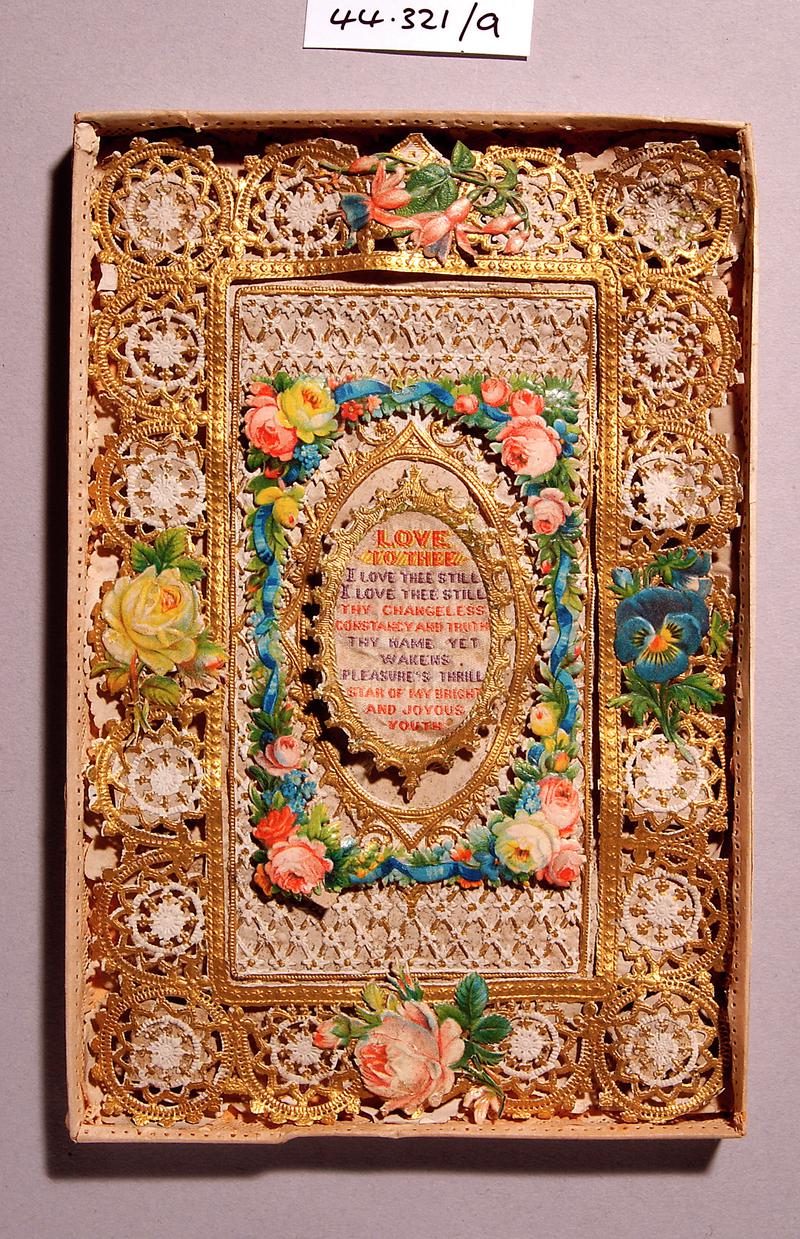 44.321/a
LOVE
TO THEE
I LOVE THEE STILL
I LOVE THEE STILL
THY CHANGELESS
CONSTANCY AND TRUTH
THY NAME YET
WAKENS
PLEASURE'S THRILL
STAR OF MY BRIGHT
AND JOYOUS
YOUTH